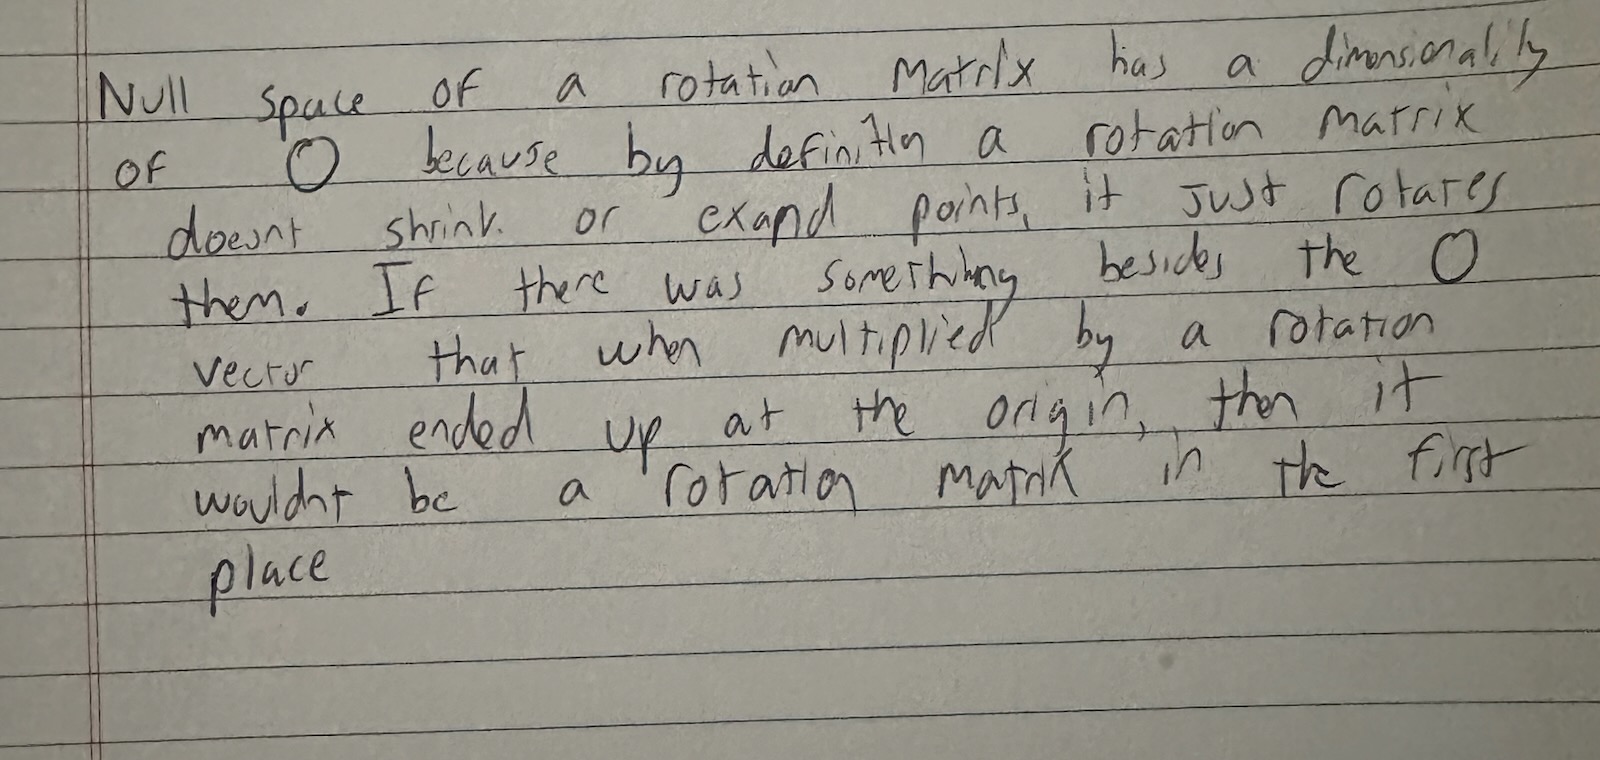 Null space of a rotation matrix has a dimensionality
of 0 because by definitin a rotation matrix
doesnt shrink or exapnd points, it just rotates
them. If there was something besides the 0
vector that when multiplied by a rotation
matrix ended up at the origin, then it
wouldnt be a rotation matrix in the first
place